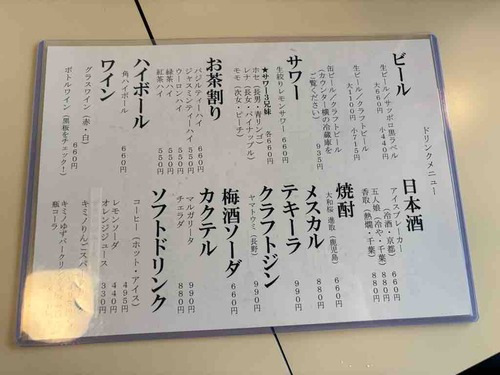 ドリンクメニュー
ビール
生ビール/サッポロ黒ラベル
大660円 小440円
生ビール/クラフトビール
大1100円 小715円
缶ビール/クラフトビール 935円
(カウンター横の冷蔵庫を
ご覧ください)
サワー
生絞りレモンサワー 660円
★サワー3兄妹 各660円
ホセ(長男・青リンゴ)
レナ(長女・パイナップル)
モモ(次女・ピーチ)
お茶割り
バジルティーハイ 660円
ジャスミンティーハイ 550円
ウーロンハイ 550円
緑茶ハイ 550円
紅茶ハイ 550円
ハイボール
角ハイボール 660円
ワイン
グラスワイン(赤・白) 660円
ボトルワイン(黒板をチェック!)
日本酒
アイスブレーカー 660円
(冷酒・京都)
五人娘(冷や・千葉) 880円
香取(熱燗・千葉) 880円
焼酎
大和桜 進取(鹿児島) 660円
メスカル 880円
テキーラ 990円
クラフトジン
ヤマトウミ(長野) 990円
梅酒ソーダ 660円
カクテル
マルガリータ 990円
チェラダ 880円
ソフトドリンク
コーヒー(ホット・アイス) 495円
レモンソーダ 440円
オレンジジュース 330円
キミノりんごスパー
キミノゆずスパークリ
瓶コーラ